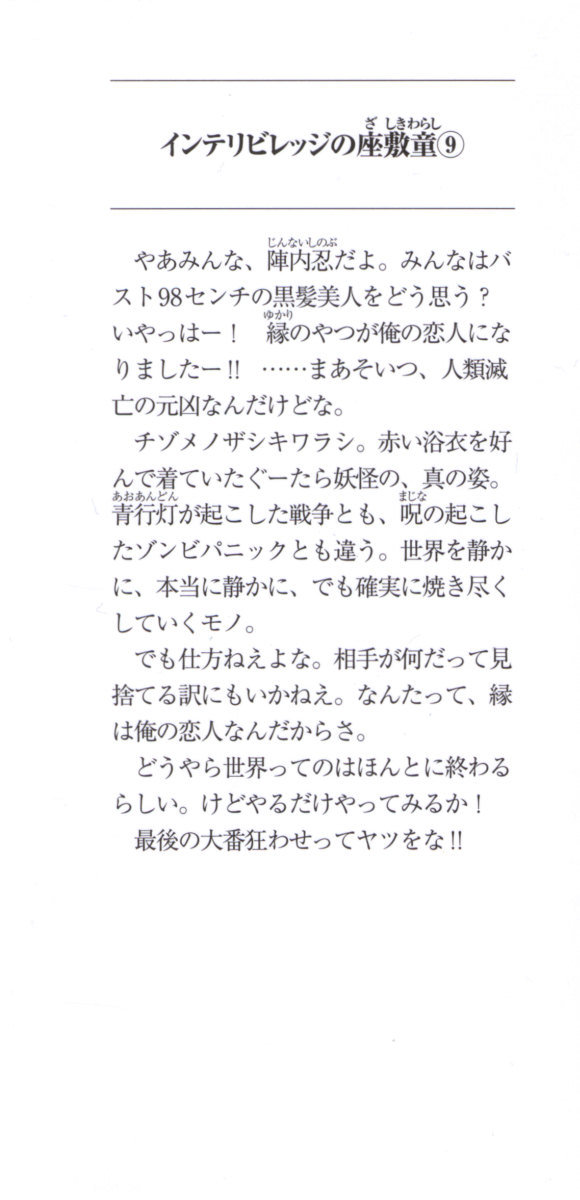 インテリビレッジの座敷童⑨
やあみんな、陣内忍だよ。みんなはバ
スト98センチの黒髪美人をどう思う？
いやっはー！　縁のやつが俺の恋人にな
りましたー!!　……まあそいつ、人類滅
亡の元凶なんだけどな。
チゾメノザシキワラシ。赤い浴衣を好
んで着ていたぐーたら妖怪の、真の姿。
青行灯が起こした戦争とも、呪の起こし
たゾンビパニックとも違う。世界を静か
に、本当に静かに、でも確実に焼き尽く
していくモノ。
でも仕方ねえよな。相手が何だって見
捨てる訳にもいかねえ。なんたって、縁
は俺の恋人なんだからさ。
どうやら世界ってのはほんとに終わる
らしい。けどやるだけやってみるか！
最後の大番狂わせってヤツをな!!